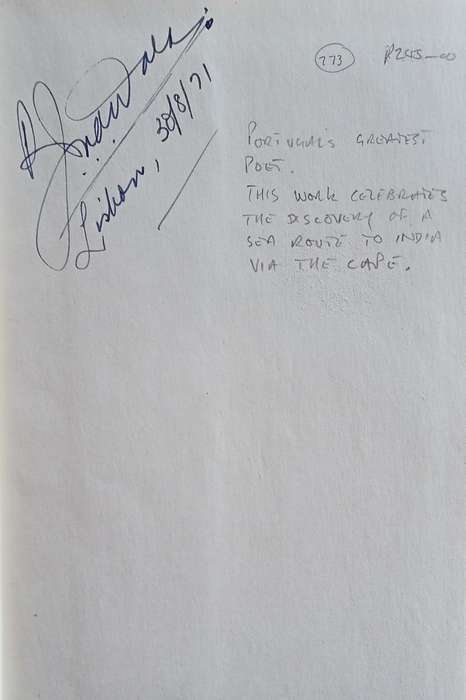 Lisbon, 30/8/71
773 R245-00
PORTUGAL'S GREATEST
POET.
THIS WORK CELEBRATES
THE DISCOVERY OF A
SEA ROUTE TO INDIA
VIA THE CAPE.